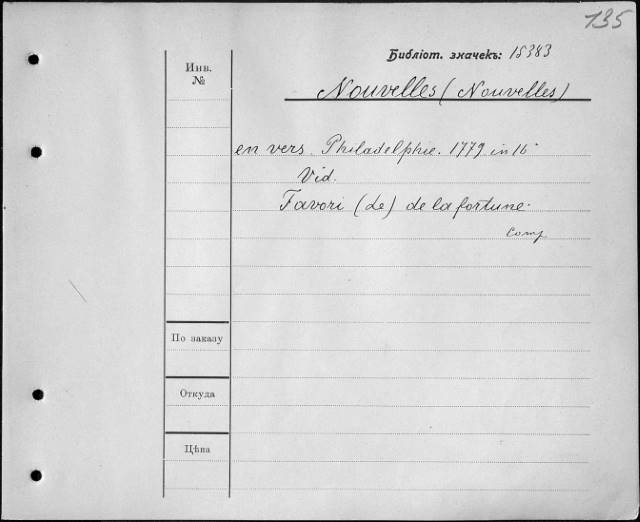 735
Библіот. значекъ: 15383
Инв.
№
Nouvelles (Nouvelles)
en vers. Philadelphie. 1779 in 16°
Vid.
Favori (Le) de la fortune.
По заказу
Откуда
Цѣна